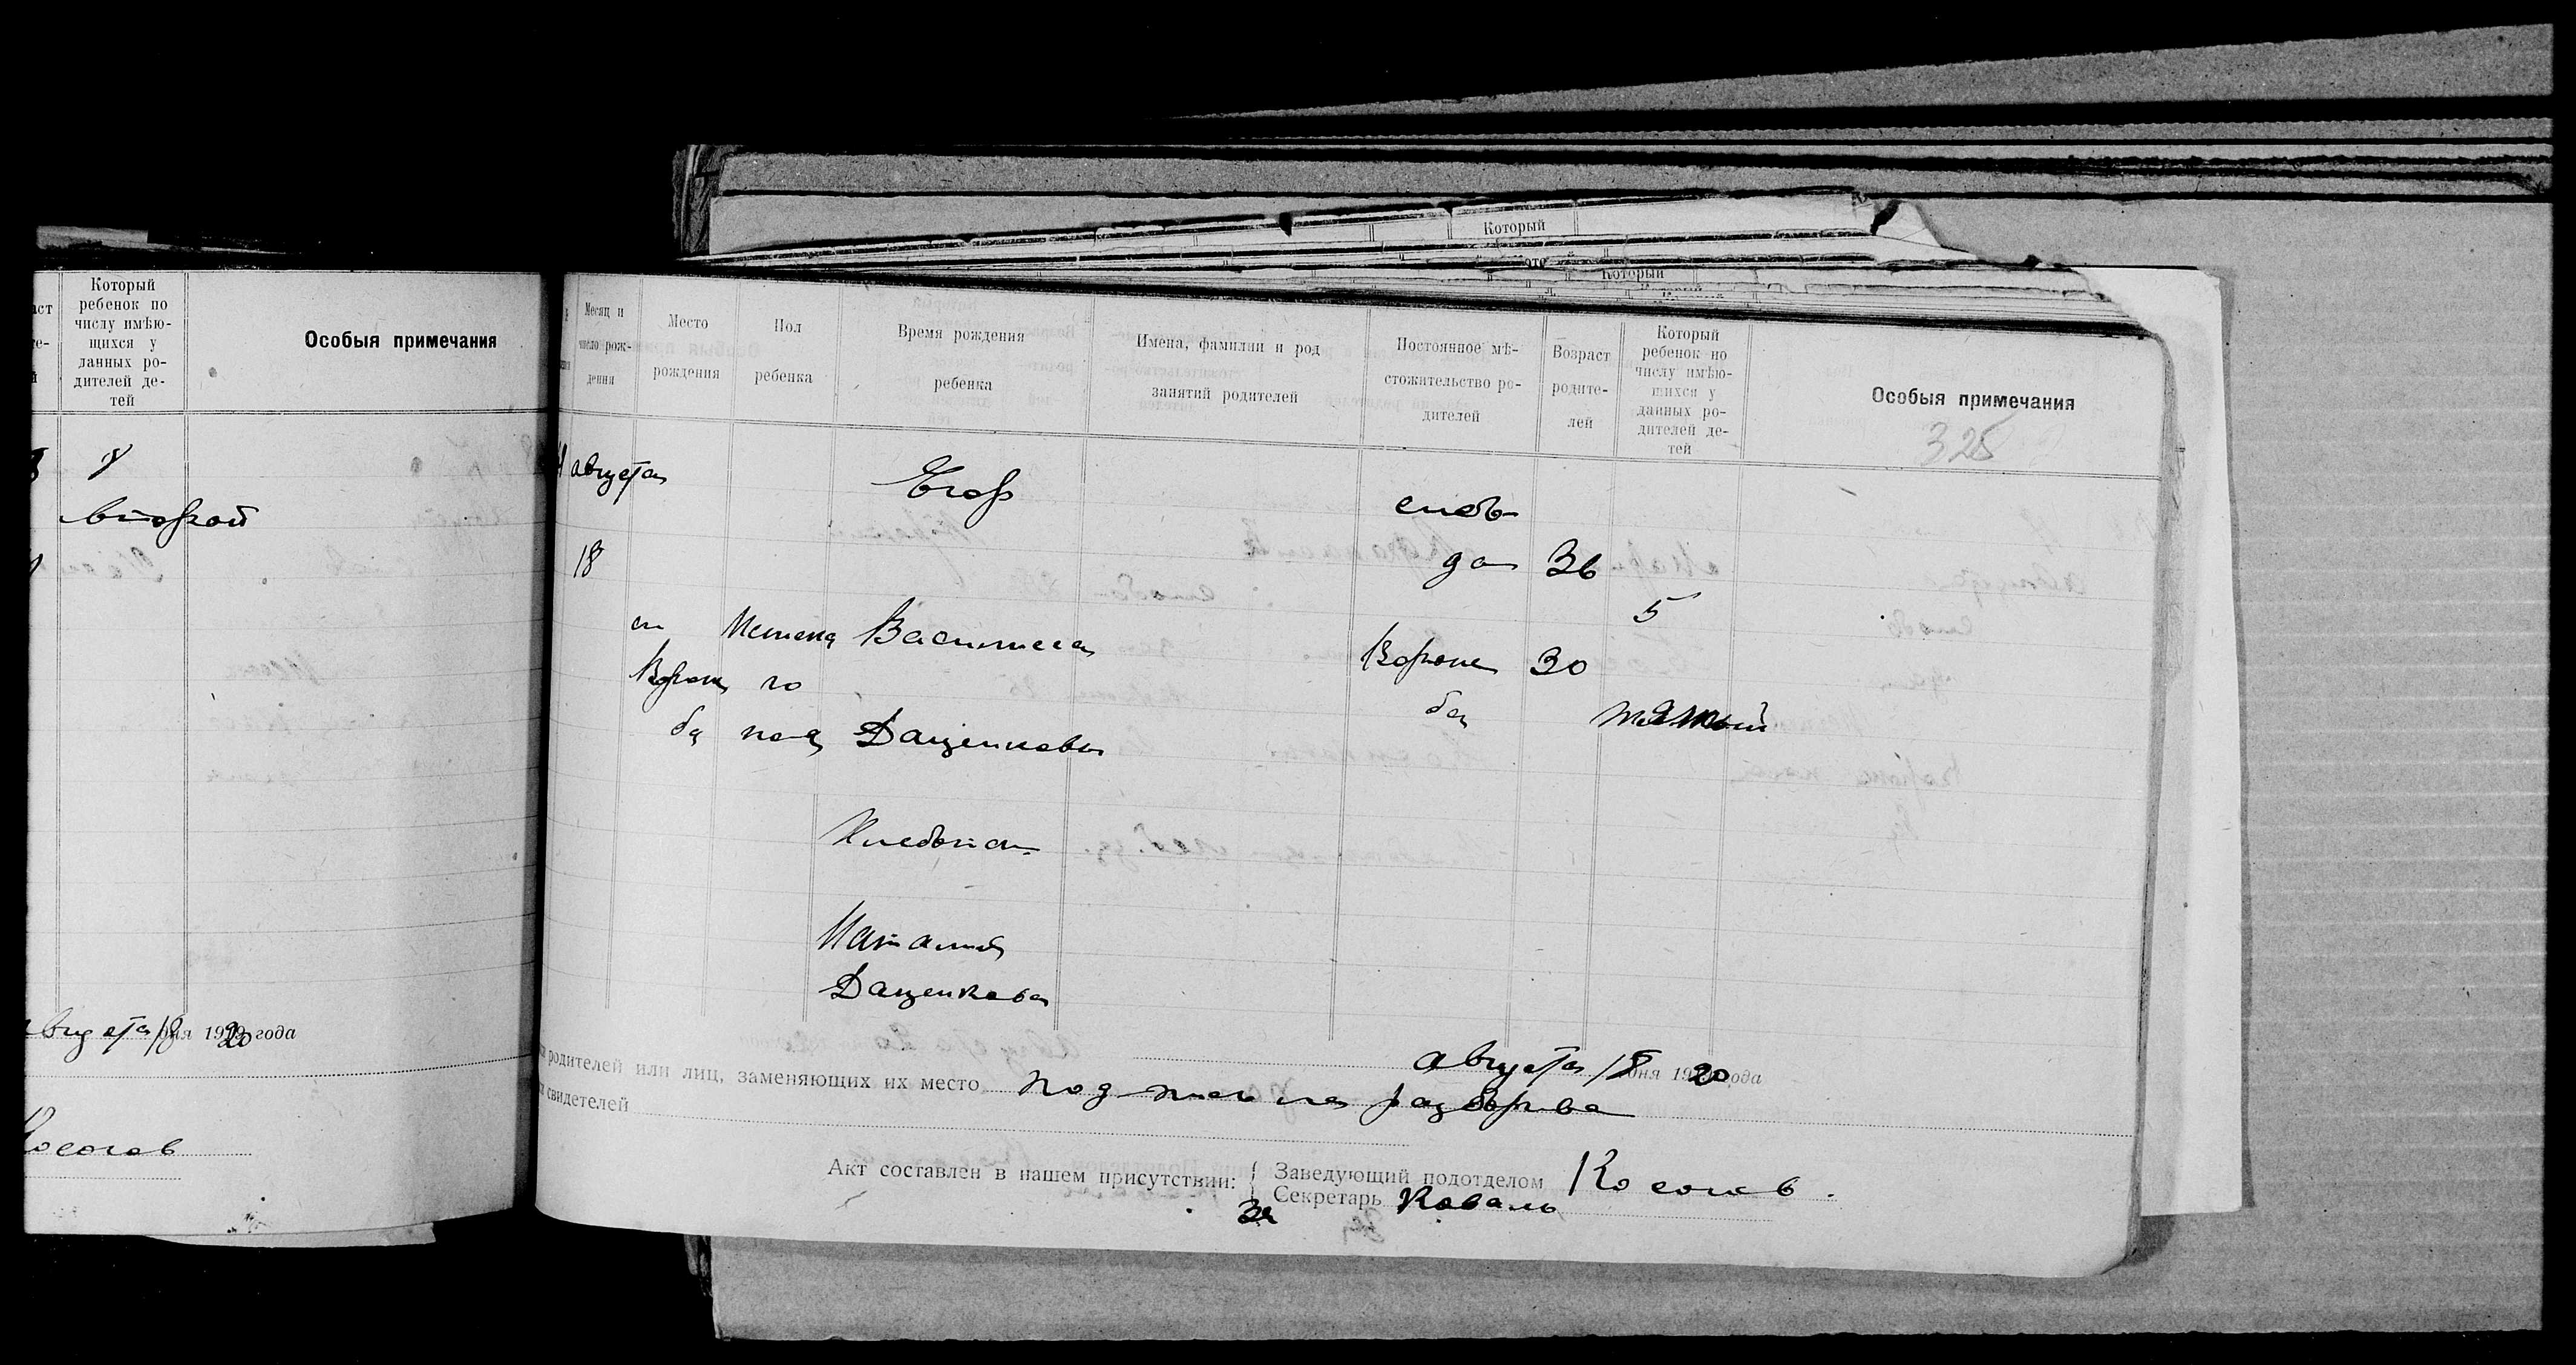 Который
Который
Который
ребенок по
числу имѣю-
щихся у
данных ро-
дителей де-
тей
Особыя примечания
8
второй
августа 18 дня 1920 года
Косогов
Месяц и
число рож-
дения
Место
рождения
Пол
ребенка
Время рождения
ребенка
Имена, фамилии и род
занятий родителей
Постоянное мѣ-
стожительство ро-
дителей
Возраст
родите-
лей
Который
ребенок по
числу имѣю-
щихся у
данных ро-
дителей де-
тей
Особыя примечания
325
августа
18
Егор
слобо
да 36
5
Женска Василиса
Вороне 30
го
ба
ба пола Даценкова
пятый
Хлебопаш
Наталия
Даценкова
августа 18 дня 1920 года
родителей или лиц, заменяющих их место
свидетелей
Акт составлен в нашем присутствии: { Заведующий подотделом Косогов.
Секретарь Коваль
За